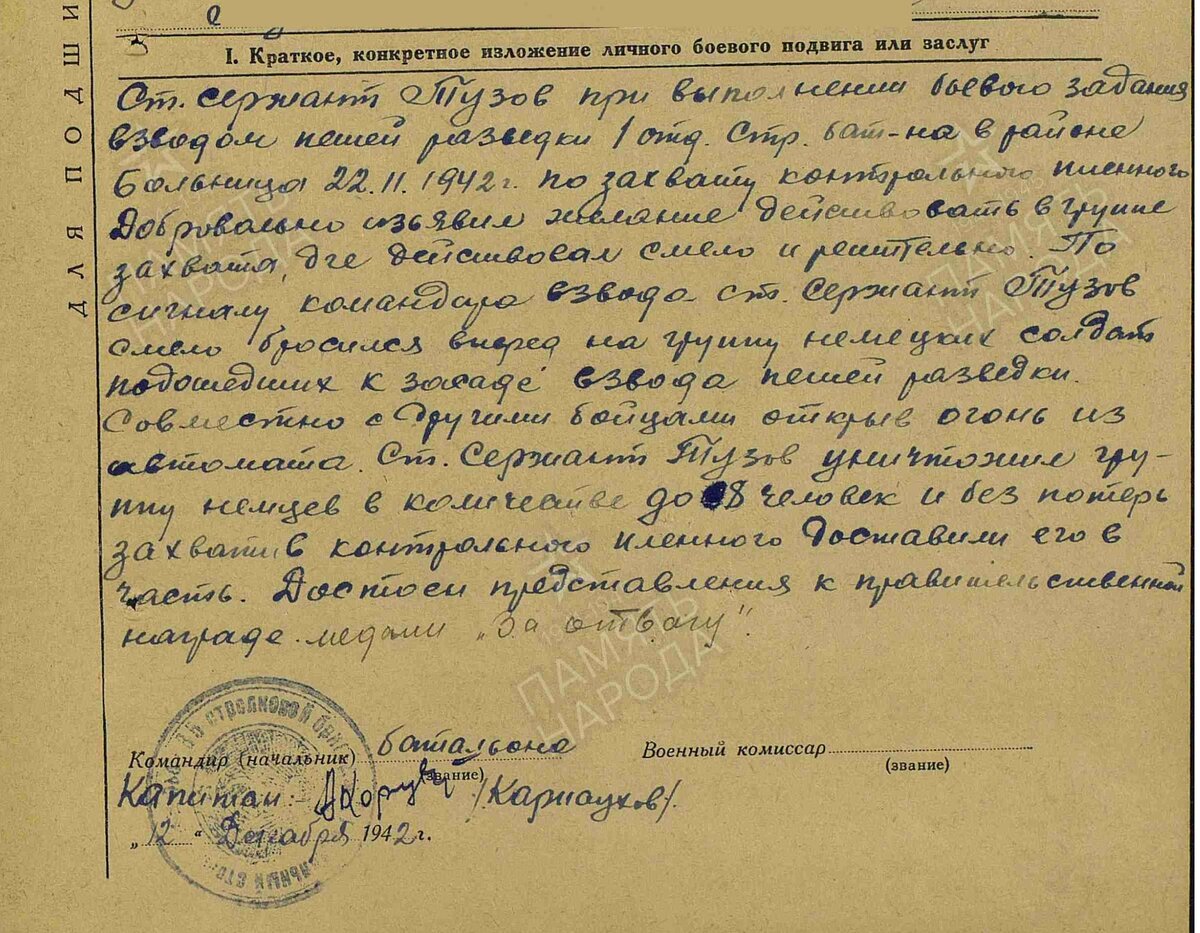 ДЛЯ ПОДШИ
I. Краткое, конкретное изложение личного боевого подвига или заслуг
Ст. сержант Тузов при выполнении боевого задания
взводом пешей разведки 1 отд. Стр. бат-на в районе
Больница 22.11.1942г. по захвату контрольного пленного
Добровально изъявил желание действовать в группе
захвата, где действовал смело и решительно. По
сигналу командира взвода ст. Сержант Тузов
смело бросился вперед на группу немецких солдат
подошедших к засаде взвода пешей разведки.
Совместно с другими бойцами открыв огонь из
автомата. Ст. Сержант Тузов уничтожил гру-
ппу немцев в количестве до 8 человек и без потерь
захватив контрольного пленного доставили его в
часть. Достоен представления к правительственной
награде. медали „За отвагу".
Командир (начальник) батальона Военный комиссар
(звание) (звание)
Капитан /Карнаухов/.
„12" Декабря 1942г.
стрелковой бриг
ПАМЯТЬ
НАРОДА
ПАМЯТЬ
НАРОДА
ПАМЯТЬ
НАРОДА